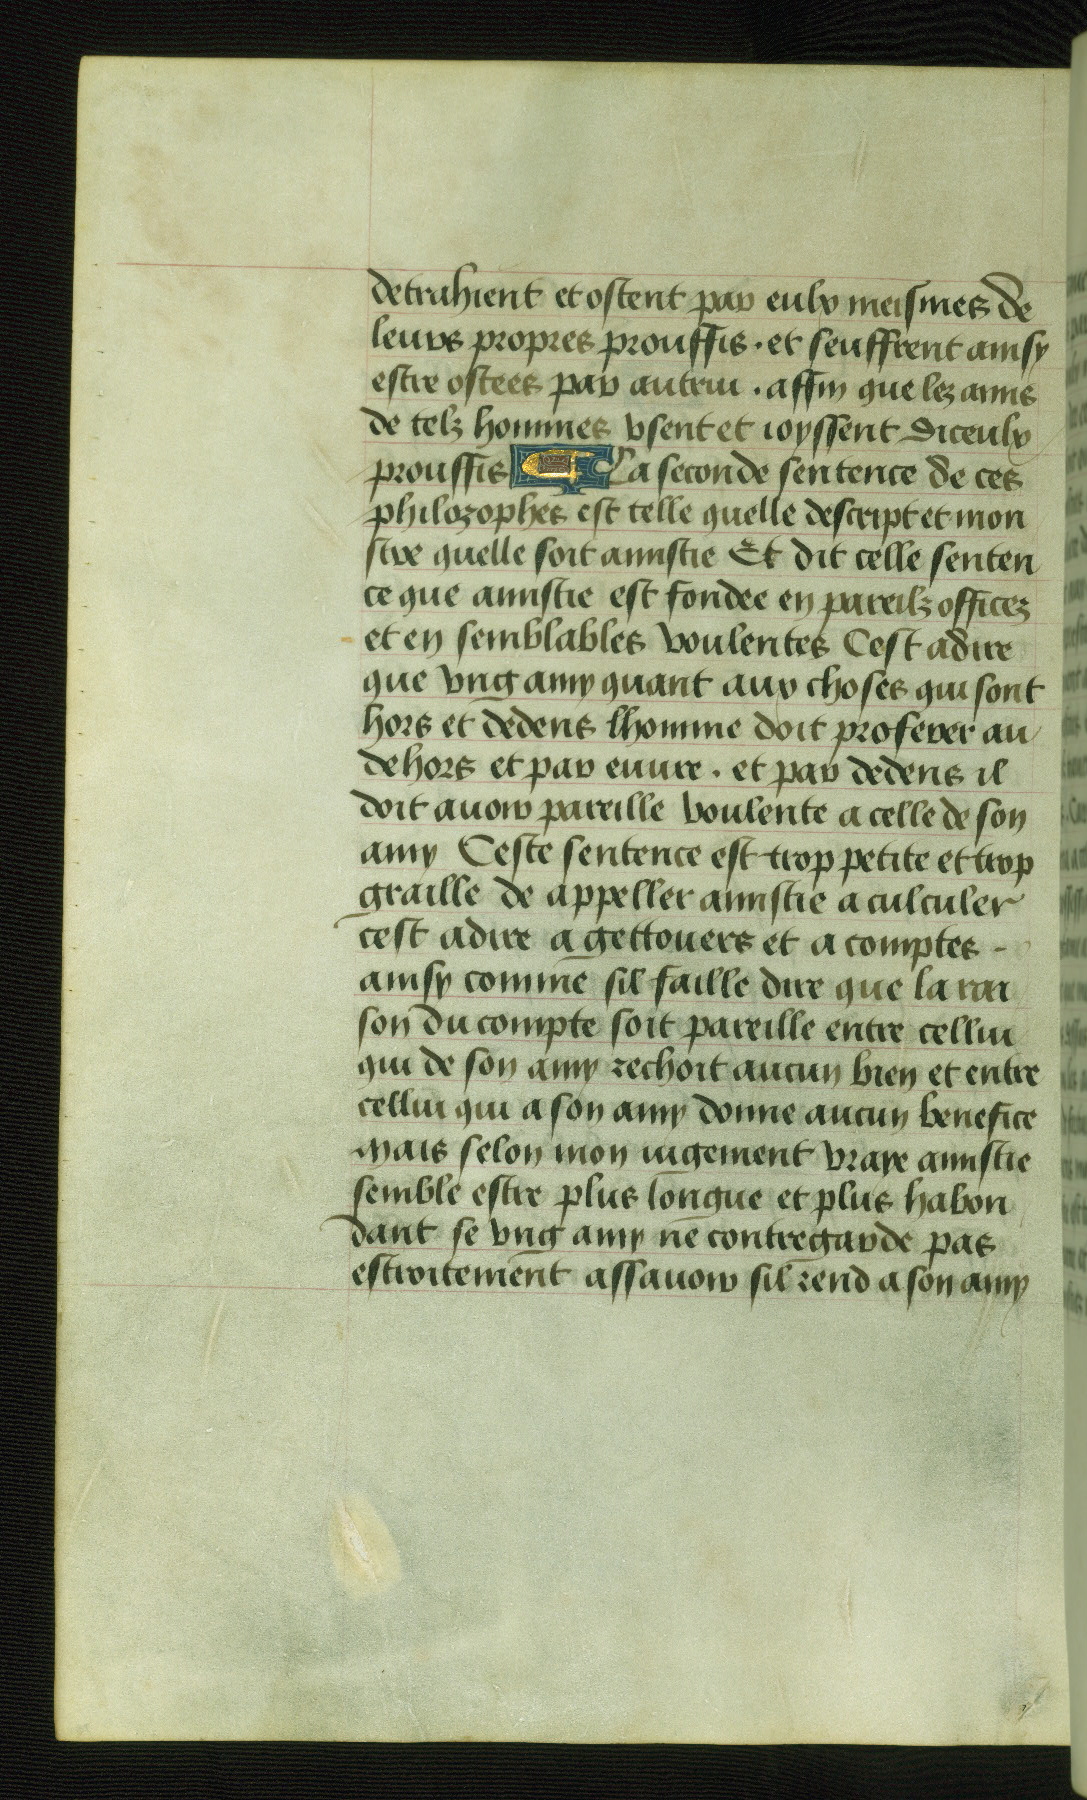 detrahient et ostent par eulx meismes de
leurs propres prouffis . et seuffrent ainsy
estre ostees par autrui . affin que lez amis
de telz hommes vsent et ioyssent diceulx
prouffis La seconde sentence de ces
philozophes est telle quelle descript et mon
stre quelle soit amistie Et dit celle senten
ce que amistie est fondee en pareilz officez
et en semblables voulentes Cest adire
que vng amy quant aux choses qui sont
hors et dedens lhomme doit proferer au
dehors et par euure . et par dedens il
doit auoir pareille voulente a celle de son
amy Ceste sentence est trop petite et trop
graille de appeller amistie a culculer
cest adire a gettouers et a comptes -
ainsy comme sil faille dire que la rai
son du compte soit pareille entre cellui
qui de son amy rechoit aucun bien et entre
cellui qui a son amy donne aucun benefice
Mais selon mon iugement vraye amistie
semble estre plus longue et plus habon
dant se vng amy ne contregarde pas
estroitement assauoir sil rend a son amy